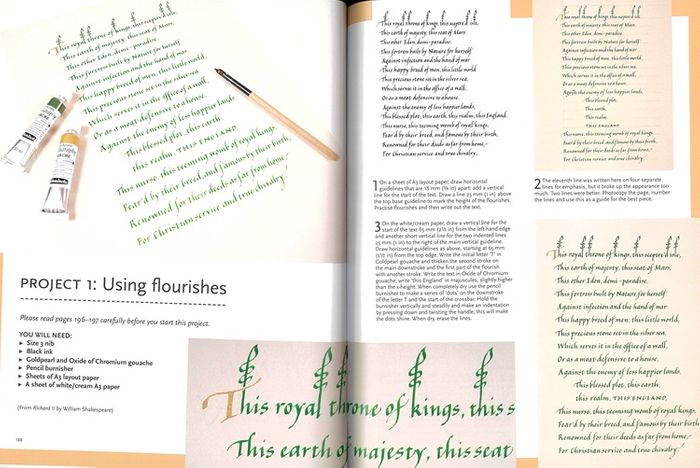 This royal throne of kings, this scepter'd isle,
This earth of majesty, this seat of Mars,
This other Eden, demi-paradise,
This fortress built by Nature for herself
Against infection and the hand of war
This happy breed of men, this little world,
This precious stone set in the silver sea,
Which serves it in the office of a wall,
Or as a moat defensive to a house,
Against the envy of less happier lands
This blessed plot, this earth,
this realm, THIS ENGLAND,
This nurse, this teeming womb of royal kings,
Fear'd by their breed, and famous by their birth,
Renowned for their deeds as far from home,
For Christian service and true chivalry
PROJECT 1: Using flourishes
Please read pages 196–197 carefully before you start this project.
YOU WILL NEED:
► Size 3 nib
► Black ink
► Goldpearl and Oxide of Chromium gouache
► Pencil burnisher
► Sheets of A3 layout paper
► A sheet of white/cream A3 paper
(From Richard II by William Shakespeare)
188
This royal throne of kings, this scepter'd isle,
This earth of majesty, this seat of Mars,
This other Eden, demi-paradise,
This fortress built by Nature for herself
Against infection and the hand of war
This happy breed of men, this little world
This precious stone set in the silver sea,
Which serves it in the office of a wall,
Or as a moat defensive to a house,
Against the enemy of less happier lands,
This blessed plot, this earth, this realm, this England,
This nurse, this teeming womb of royal kings,
Fear'd by their breed, and famous by their birth,
Renowned for their deeds as far from home,
For Christian service and true chivalry.
1 On a sheet of A3 layout paper, draw horizontal
guidelines that are 18 mm (¾ in) apart; add a vertical
line for the start of the text. Draw a line 25 mm (1 in) above
the top base guideline to mark the height of the flourishes.
Practise flourishes and then write out the text.
3 On the white/cream paper, draw a vertical line for the
start of the text 65 mm (2½ in) from the left-hand edge
and another short vertical line for the two indented lines
25 mm (1 in) to the right of the main vertical guideline.
Draw horizontal guidelines as above, starting at 65 mm
(2½ in) from the top edge. Write the initial letter 'T' in
Goldpearl gouache and thicken the second stroke on
the main downstroke and the first part of the flourish
with another stroke. Write the text in Oxide of Chromium
gouache; write 'this England' in majuscules, slightly higher
than the x-height. When completely dry use the pencil
burnisher to make a series of 'dots' on the downstroke
of the letter T and the start of the crossbar. Hold the
burnisher vertically and steadily and make an indentation
by pressing down and twisting the handle; this will make
the dots shine. When dry, erase the lines.
This royal throne of kings, this s
This earth of majesty, this seat
This royal throne of kings, this scepter'd isle,
This earth of majesty, this seat of Mars,
This other Eden, demi-paradise,
This fortress built by Nature for herself
Against infection and the hand of war
This happy breed of men, this little world,
This precious stone set in the silver sea,
Which serves it in the office of a wall
Or as a moat defensive to a house,
Against the enemy of less happier lands,
This blessed plot,
this earth,
this realm,
THIS ENGLAND
This nurse, this teeming womb of royal kings,
Fear'd by their breed, and famous by their birth,
Renowned for their deeds as far from home,
For Christian service and true chivalry.
2 The eleventh line was written here on four separate
lines for emphasis, but it broke up the appearance too
much. Two lines were better. Photocopy the page, number
the lines and use this as a guide for the best piece.
This royal throne of kings, this scepter'd isle,
This earth of majesty, this seat of Mars,
This other Eden, demi-paradise,
This fortress built by Nature for herself
Against infection and the hand of war
This happy breed of men, this little world,
This precious stone set in the silver sea,
Which serves it in the office of a wall,
Or as a moat defensive to a house,
Against the enemy of less happier lands,
This blessed plot, this earth,
this realm, THIS ENGLAND,
This nurse, this teeming womb of royal kings,
Fear'd by their breed, and famous by their birth,
Renowned for their deeds as far from home,
For Christian service and true chivalry.